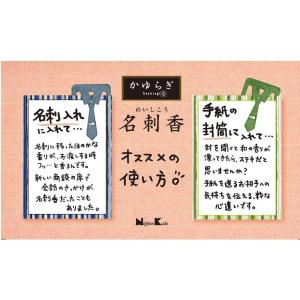 かゆらぎ
kayuragi
めいしこう
名刺香
オススメの
使い方
名刺入れ
に入れて…
名刺に移ったほのかな
香りが、お渡しする時
フッ…と香るんです。
新しい商談の席で
会話のきっかけが
名刺香だったことも
ありました。
手紙の
封筒に入れて…
封を開くと和の香りが
漂ってきたら、ステキだと
思いませんか？
手紙を送るお相手への
気持ちを伝える、粋な
心遣いです。
Nippon Kodo